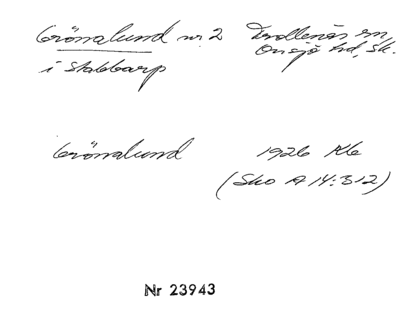 Grönalund nr. 2 Trollenäs sn,
i Stabbarp Onsjö hd, Sk.
Grönalund 1926 Kb
(Sko A 14:312)
Nr 23943